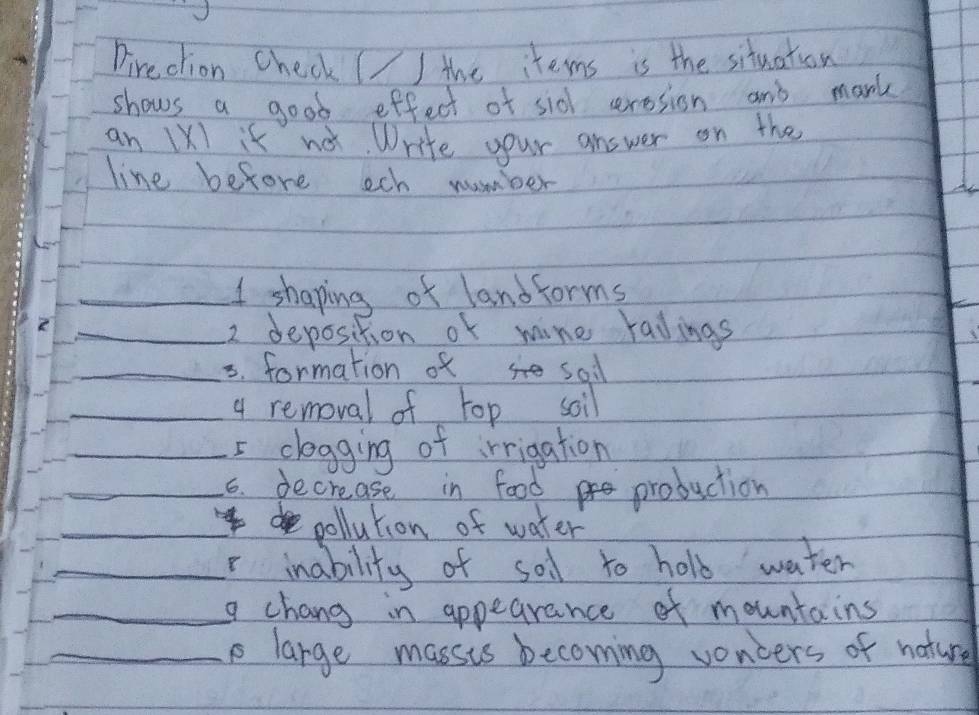 Direction Check (/) the items is the situation
shows a good effect of siol erosion and mark
an (X) if not. Write your answer on the
line before ech number
1 shaping of landforms
2 deposition of mine tailings
3. formation of soil
4 removal of top soil
5 clogging of irrigation
6. decrease in food production
7 pollution of water
8 inability of soil to hold water
9 chang in appearance of mountains
10 large massus becoming wonders of nature